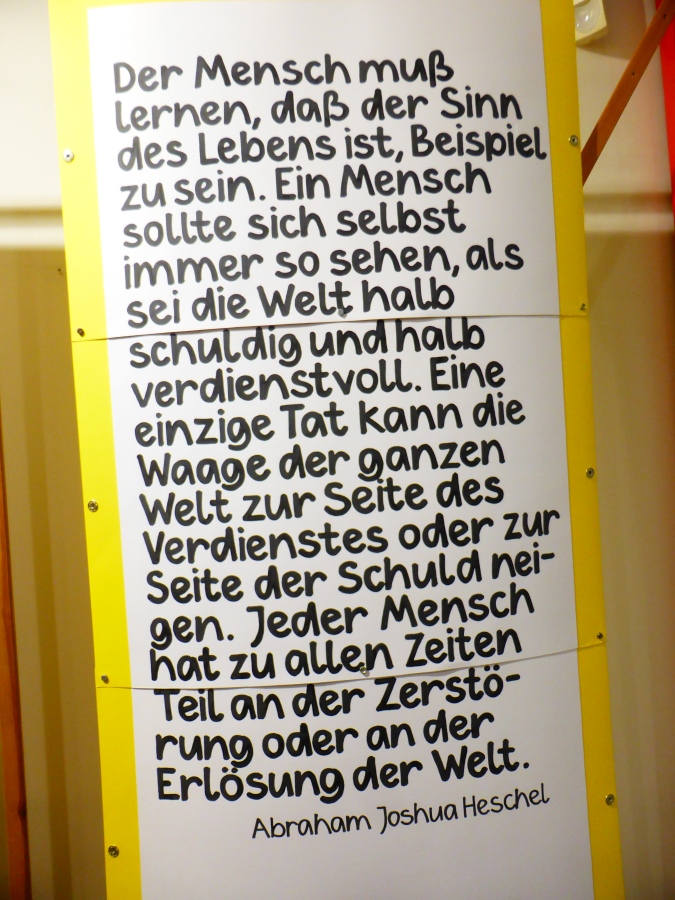 Der Mensch muß
lernen, daß der Sinn
des Lebens ist, Beispiel
zu sein. Ein Mensch
sollte sich selbst
immer so sehen, als
sei die Welt halb
schuldig und halb
verdienstvoll. Eine
einzige Tat kann die
Waage der ganzen
Welt zur Seite des
Verdienstes oder zur
Seite der Schuld nei-
gen. Jeder Mensch
hat zu allen Zeiten
Teil an der Zerstö-
rung oder an der
Erlösung der Welt.
Abraham Joshua Heschel